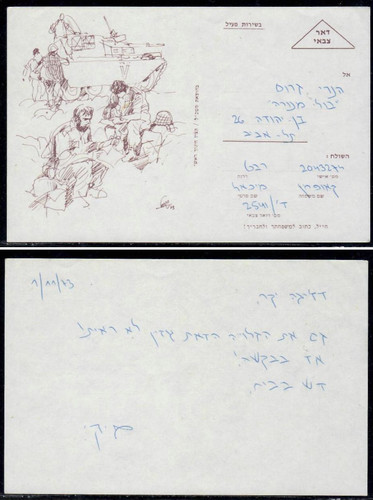 בשירות פעיל
דאר
צבאי
אל
הנרי גרוס
"בול" מנורה
בן יהודה 26
תל-אביב
השולח:
2043274 רבט
מס׳ אישי דרגה
קאופמן מיכאל
שם משפחה שם פרטי
ד"י/2541
מס׳ דואר צבאי
חייל, כתוב למשפחתך ולחבריך!
1/11/73
יקר,
גם את הגלויה הזאת עדין לא ראיתי!
אז בבקשה!
דש בבית.
מיקי